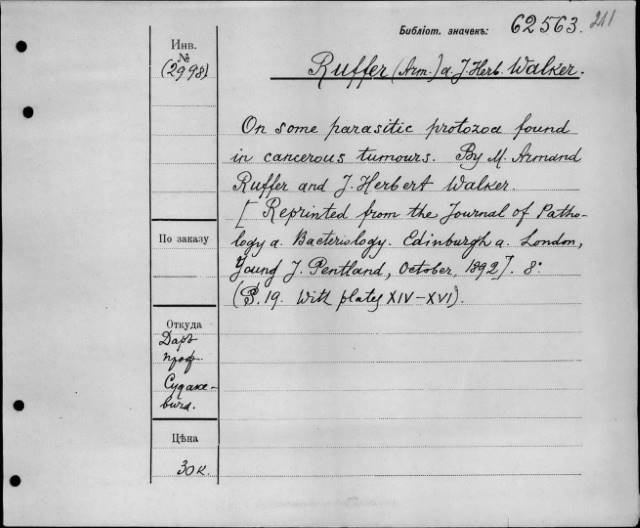 Библіот. значекъ: 62563. 211
Инв.
№
(2998)
Ruffer (Arm.) a. J. Herb. Walker.
On some parasitic protozoa found
in cancerous tumours. By M. Armand
Ruffer and J. Herbert Walker.
[Reprinted from the Journal of Patho-
logy a. Bacteriology. Edinburgh a. London,
Young J. Pentland, October, 1892]. 8:
(P. 19. With plates XIV-XVI).
По заказу
Откуда
Даръ
проф.
Судаке-
вича.
Цѣна
30 к.